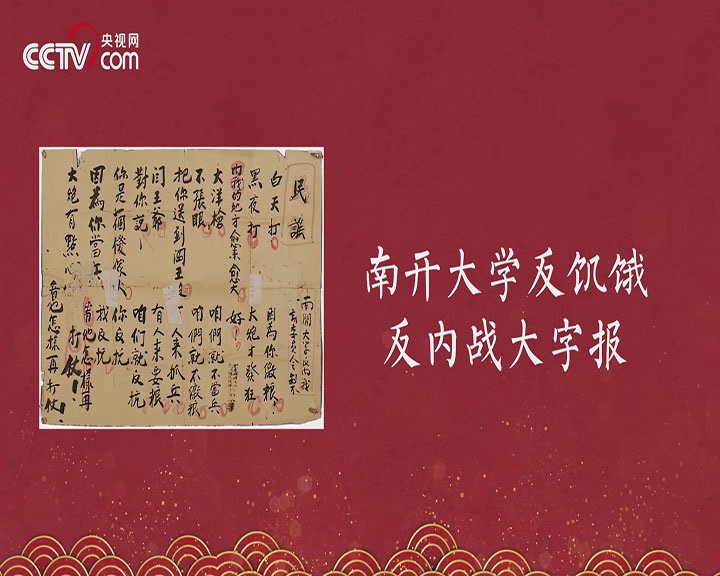 CCTV 央视网
com
民謠
白天打
黑夜打
内战的地方愈愈大
大洋槍
不張眼
把你送到閻王
閻王爺
對你說
你是
因為你當
大炮有點
南開大學反内战
因為你徵粮！
大炮才發狂
好！
咱們就不當兵
咱們就不徵粮
有人来抓兵
有人来要粮
咱們就反抗
你反抗
我反抗
看他怎樣再
打仗！
看他怎樣再打仗！
南开大学反饥饿
反内战大字报